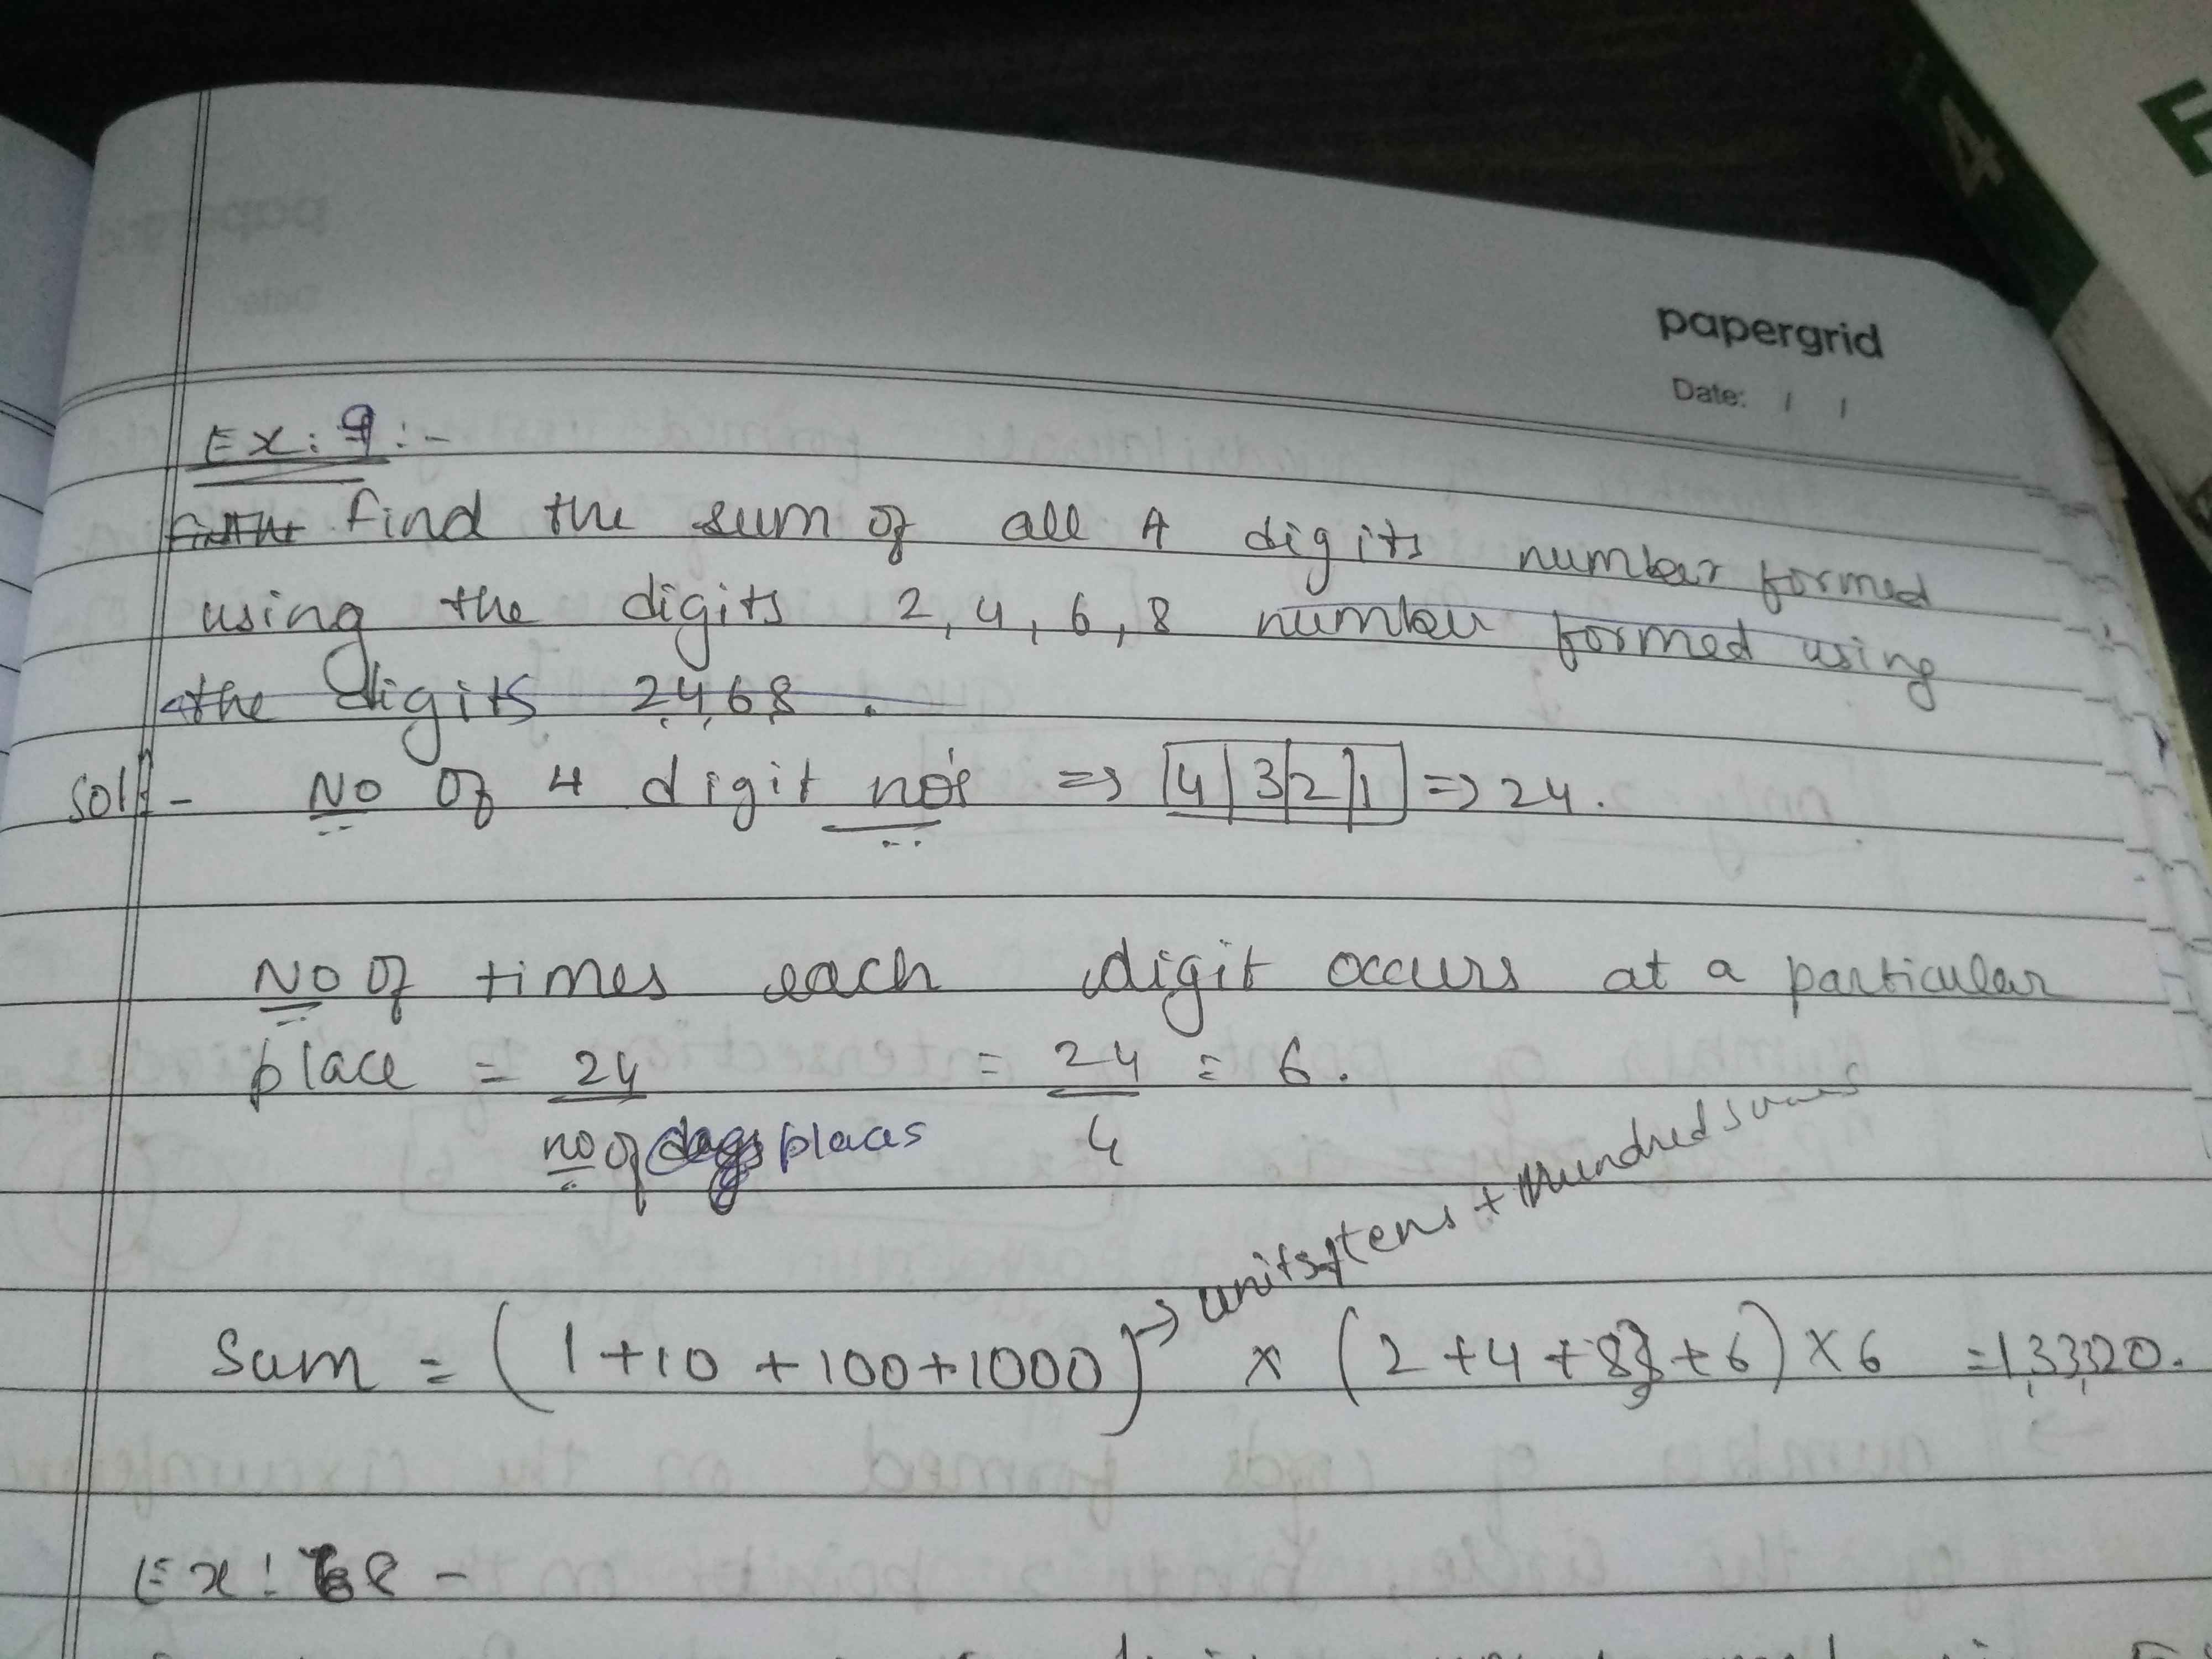 papergrid
Date: / /
Ex: 9 :-
Find the sum of all 4 digits number formed
using the digits 2, 4, 6, 8 number formed using
the digits 2,4,6,8 .
Sol:- No of 4 digit no's => 4 3 2 1 => 24.
No of times each digit occurs at a particular
place = 24 = 24 = 6.
no of places 4
units+tens + Hundreds
Sum = (1+10 +100+1000) → x (2+4+8+6) x 6 =1,33,20.
Ex: 8 -
4